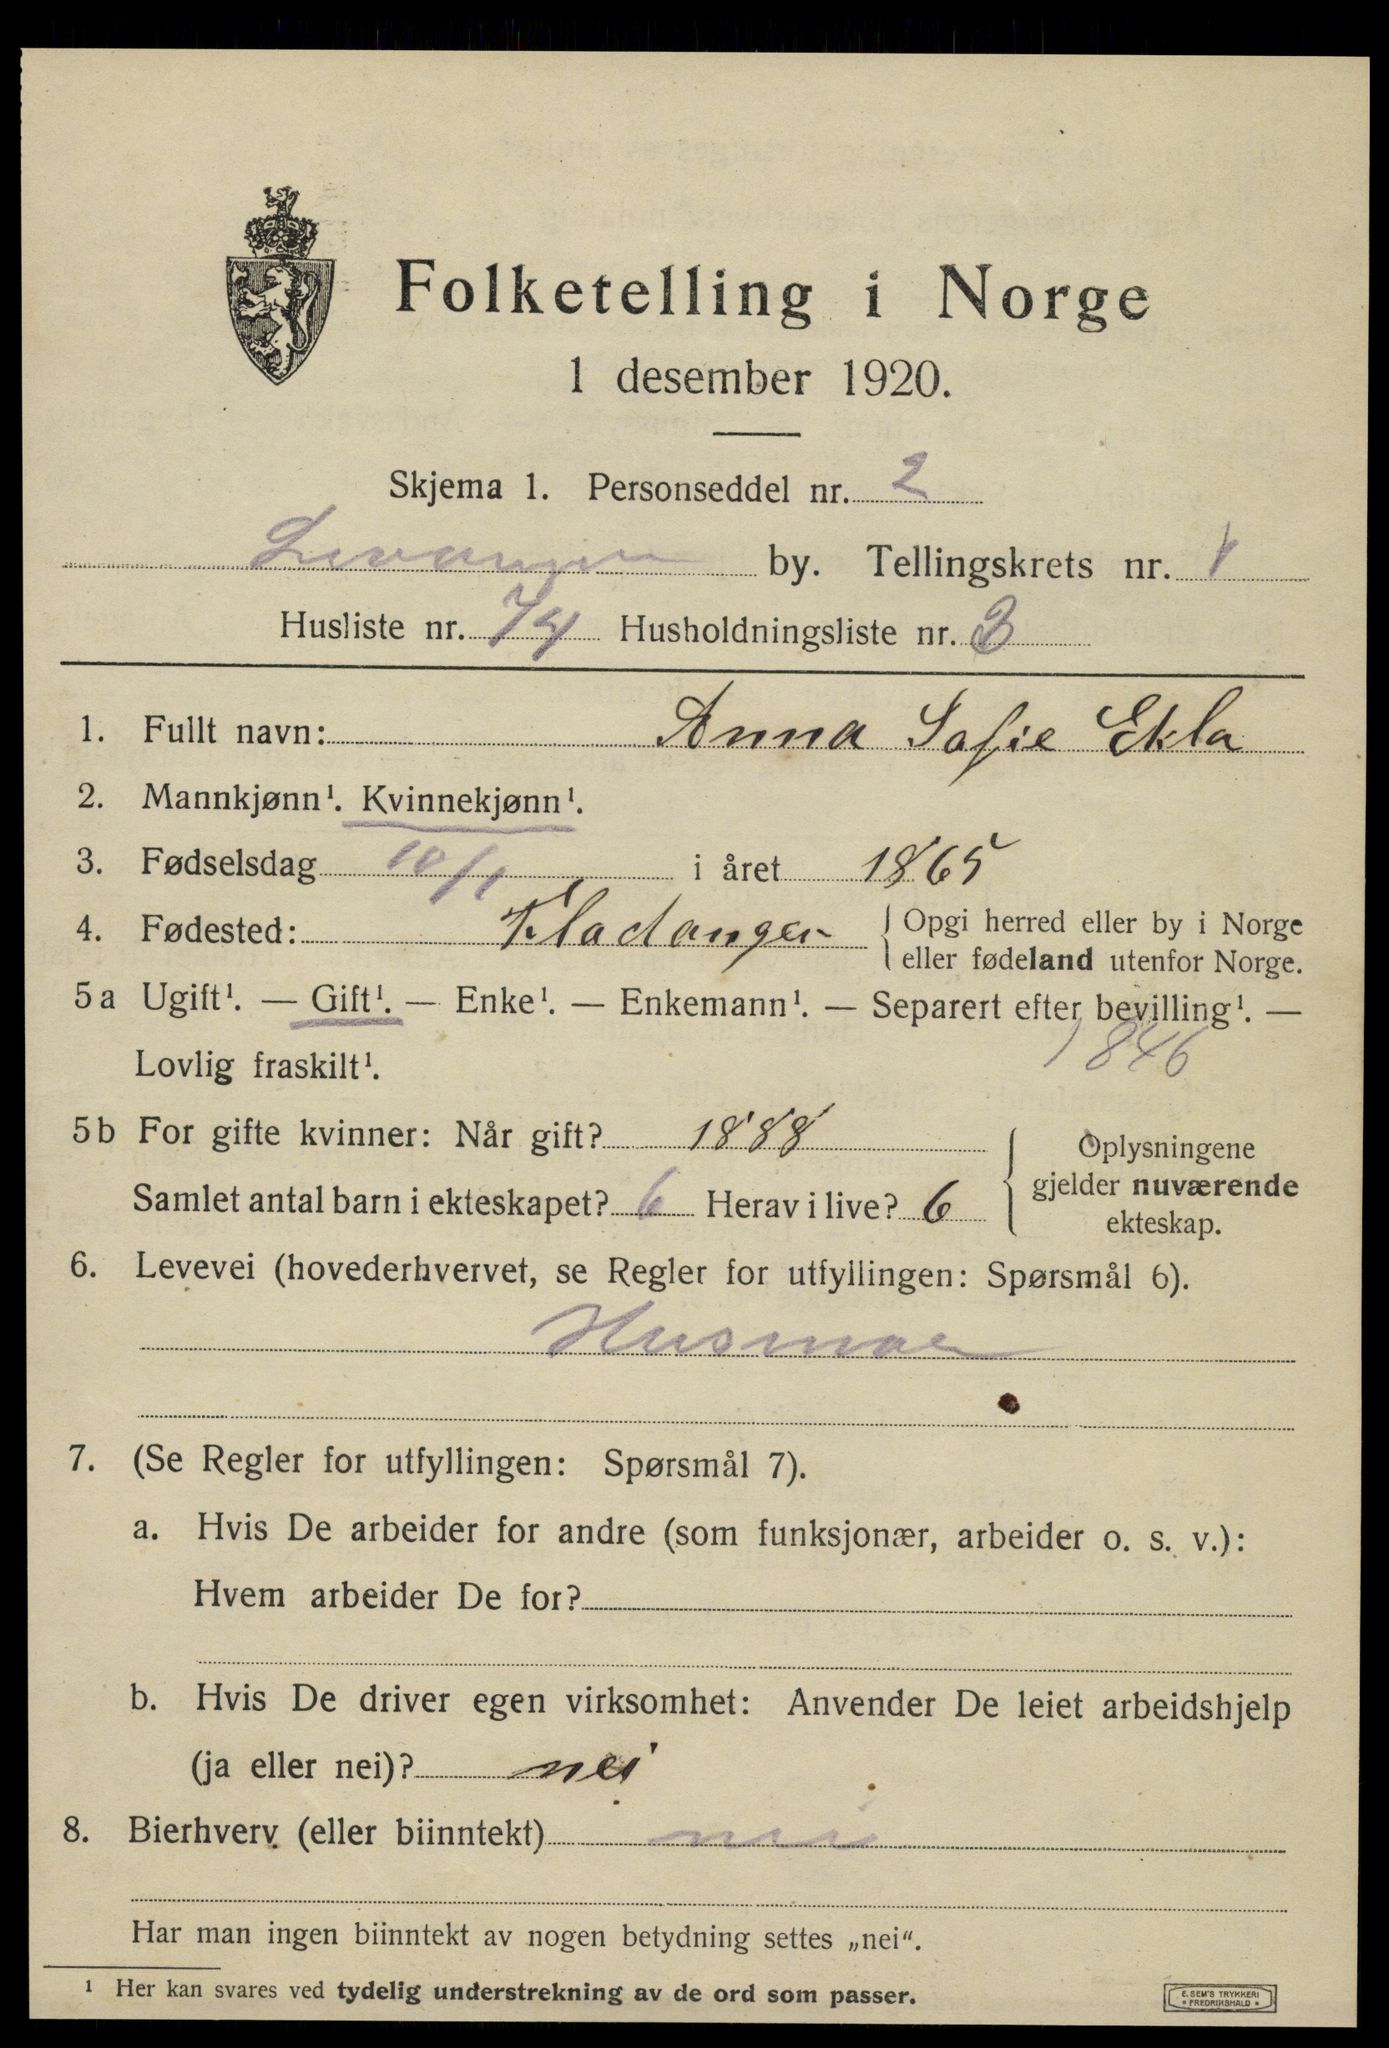 Folketelling i Norge
1 desember 1920.
Skjema 1. Personseddel nr. 2
Levanger by. Tellingskrets nr. 1
Husliste nr. 74 Husholdningsliste nr. 3
1. Fullt navn: Anna Sofie Ekla
2. Mannkjønn¹. Kvinnekjønn¹.
3. Fødselsdag 10/1 i året 1865
4. Fødested: Kladangen { Opgi herred eller by i Norge
eller fødeland utenfor Norge.
5 a Ugift¹. — Gift¹. — Enke¹. — Enkemann¹. — Separert efter bevilling¹. —
Lovlig fraskilt¹. 1846
5 b For gifte kvinner: Når gift? 1888
Samlet antal barn i ekteskapet? 6 Herav i live? 6
{ Oplysningene
gjelder nuværende
ekteskap.
6. Levevei (hovederhvervet, se Regler for utfyllingen: Spørsmål 6).
Husmor
7. (Se Regler for utfyllingen: Spørsmål 7).
a. Hvis De arbeider for andre (som funksjonær, arbeider o. s. v.):
Hvem arbeider De for?
b. Hvis De driver egen virksomhet: Anvender De leiet arbeidshjelp
(ja eller nei)? nei
8. Bierhverv (eller biinntekt) nei
Har man ingen biinntekt av nogen betydning settes „nei“.
¹ Her kan svares ved tydelig understrekning av de ord som passer.
E. SEM'S TRYKKERI
* FREDRIKSHALD *